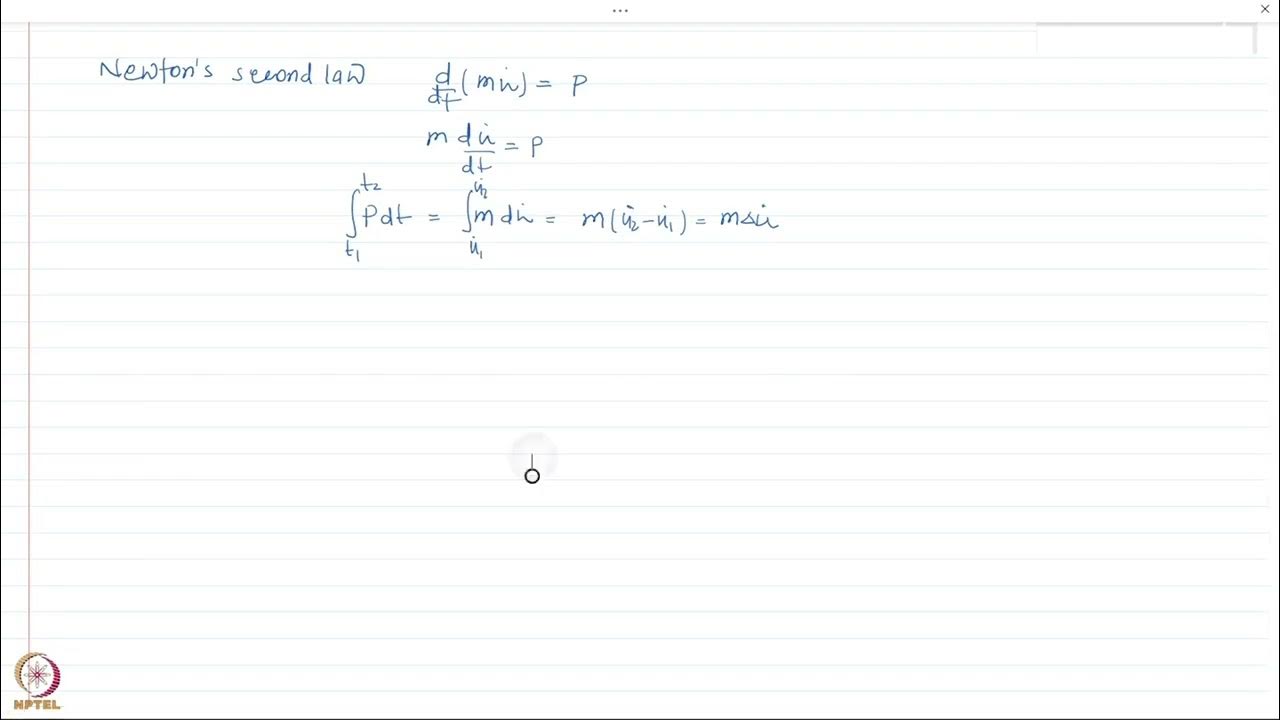 Newton's second law d/dt (mu̇) = P
m du̇/dt = P
∫_{t1}^{t2} P dt = ∫_{u̇1}^{u̇2} m du̇ = m(u̇2 − u̇1) = mΔu̇
NPTEL